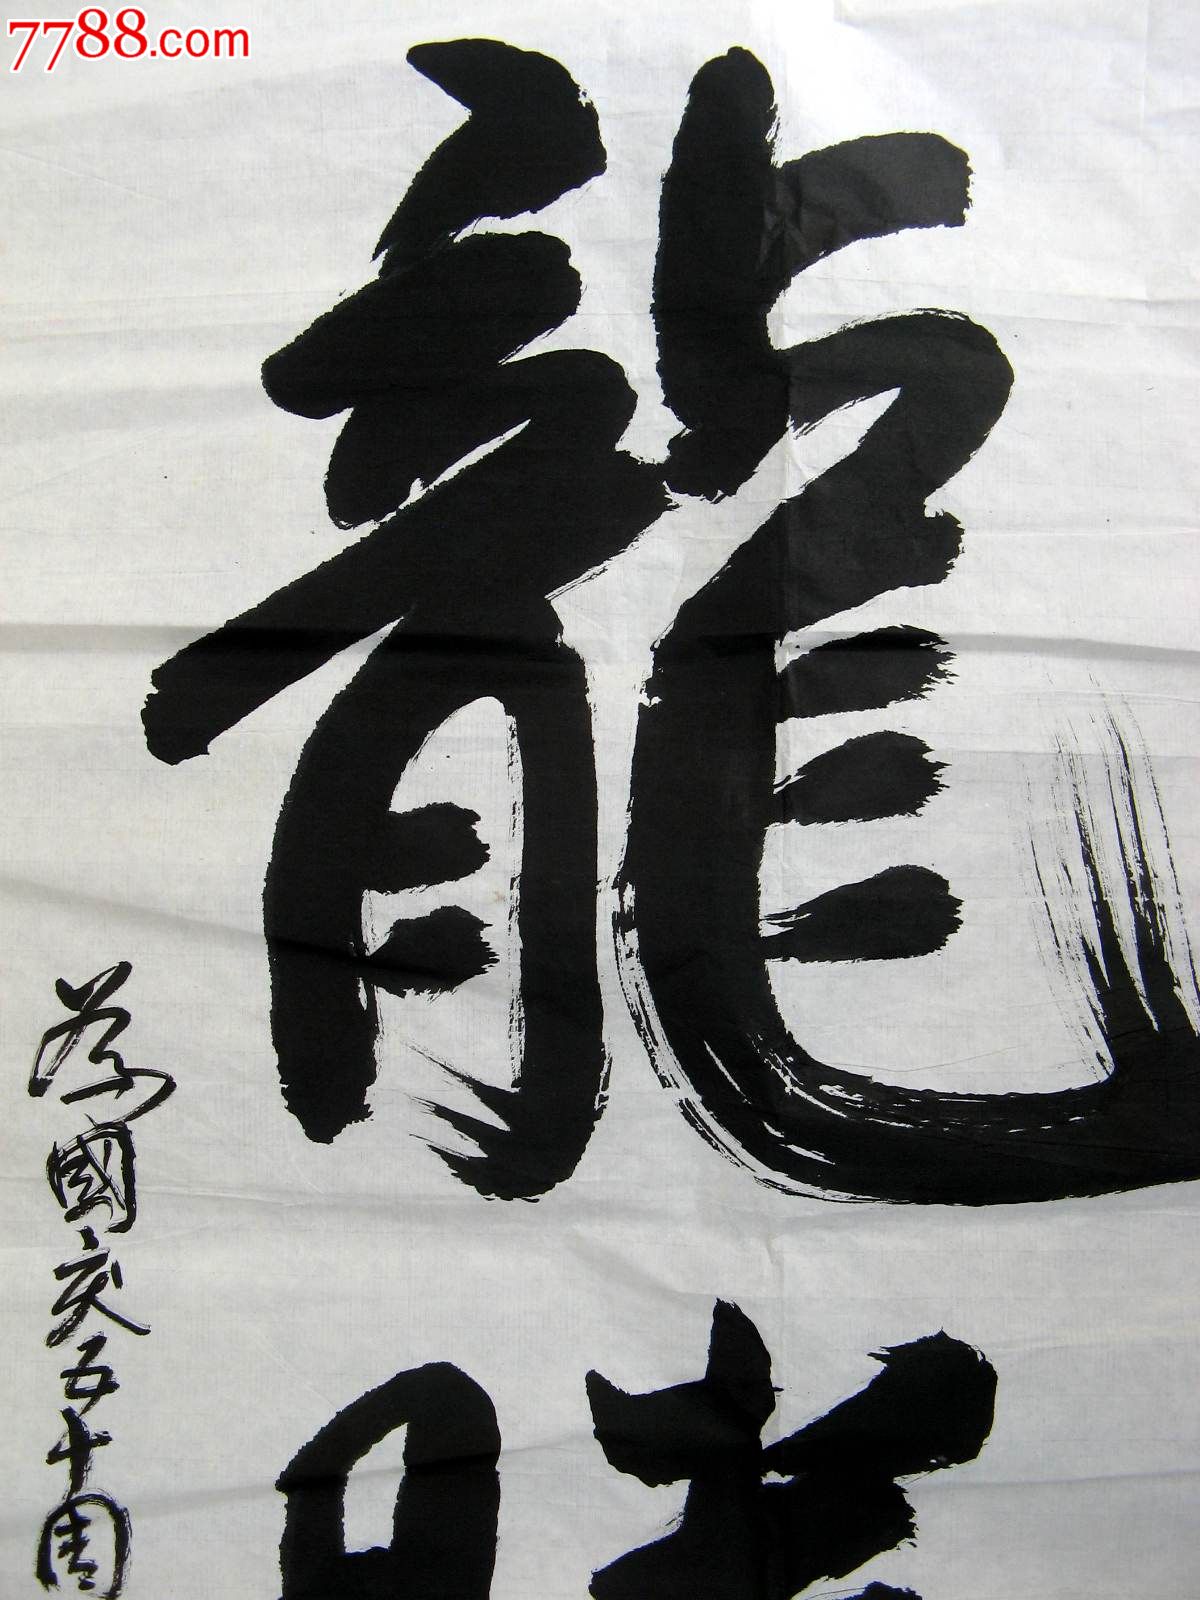 7788.com
龍
為國庆五十周